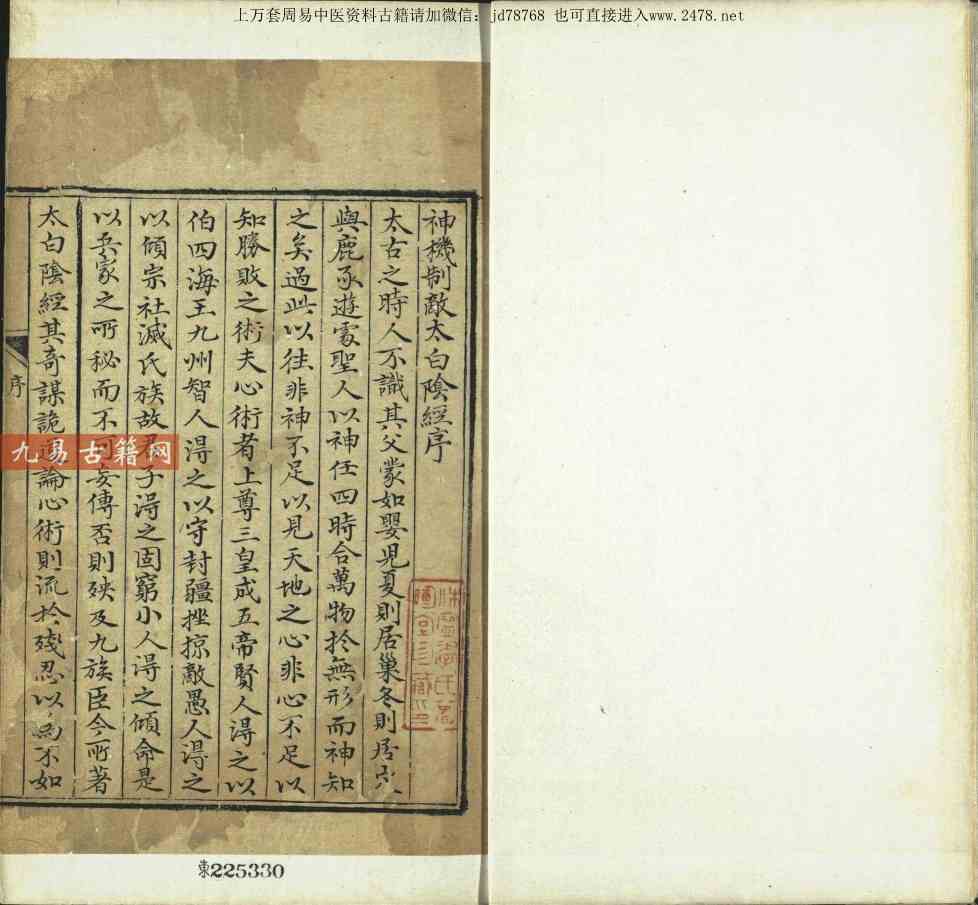 上万套周易中医资料古籍请加微信：jd78768 也可直接进入www.2478.net
神機制敵太白陰經序
太古之時人不識其父蒙如嬰兒夏則居巢冬則居穴
與鹿豕遊處聖人以神任四時合萬物於無形而神知
之矣過此以往非神不足以見天地之心非心不足以
知勝敗之術夫心術者上尊三皇成五帝賢人得之以
伯四海王九州智人得之以守封疆挫掠敵愚人得之
以傾宗社滅氏族故君子得之固窮小人得之傾命是
以兵家之所秘而不可妄傳否則殃及九族臣今所著
太白陰經其奇謀詭道論心術則流於殘忍以為不如
序
九易古籍网
東225330